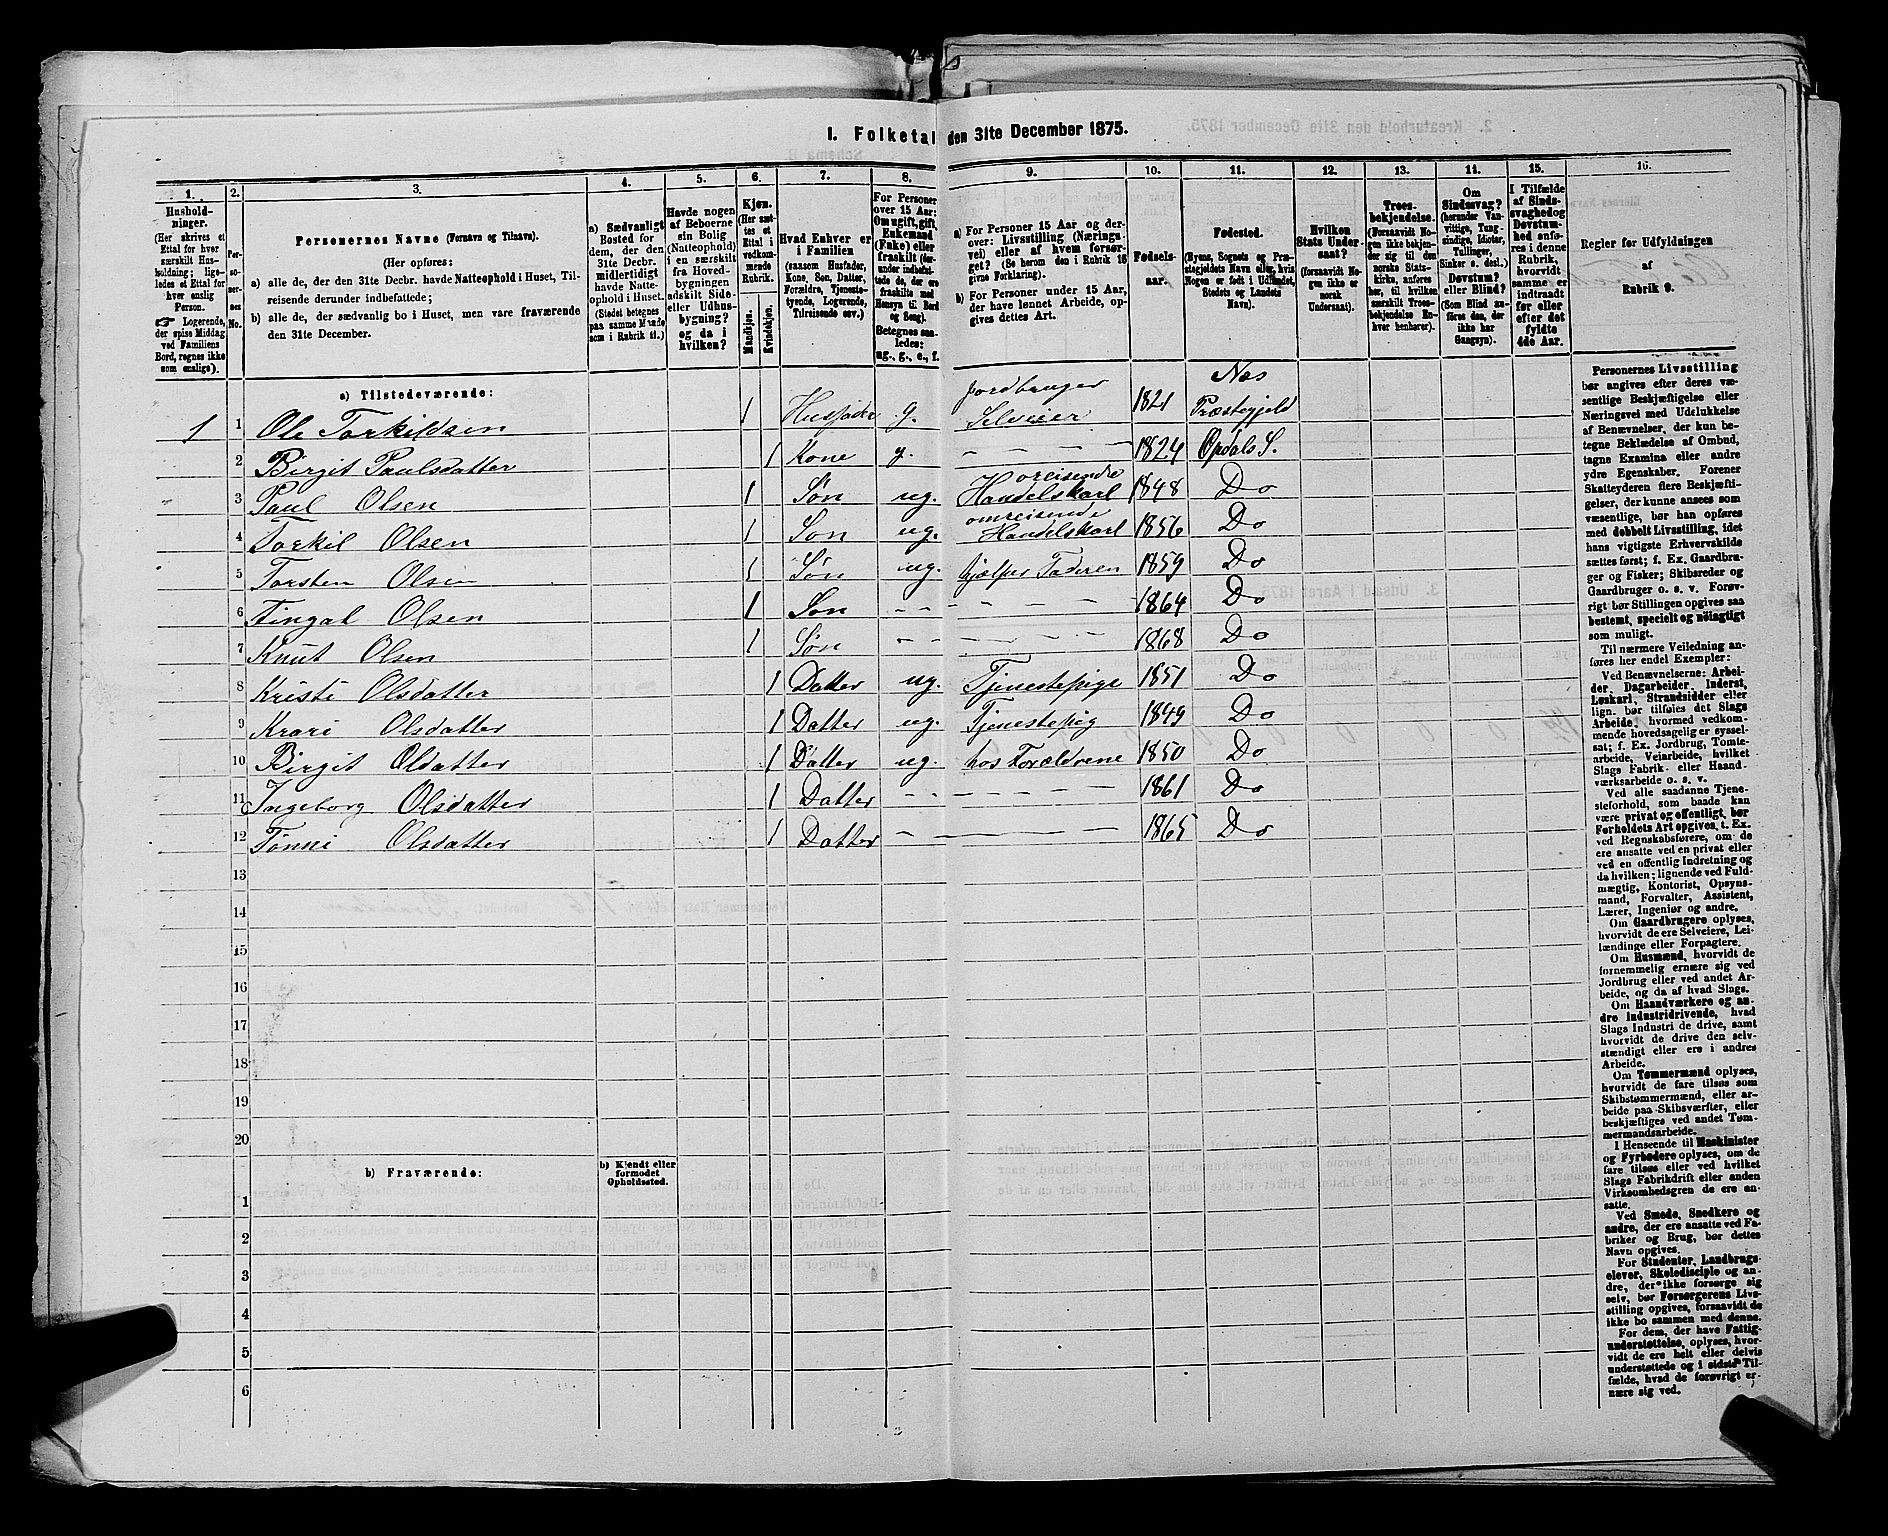 I. Folketal den 31te December 1875.
1. 2. 3. 4. 5. 6. 7. 8. 9. 10. 11. 12. 13. 14. 15. 16.
Hushold-
ninger.
(Her skrives et
Ettal for hver
særskilt Hus-
holdning; lige-
ledes et Ettal for
hver enslig
Person.
☞ Logerende,
der spise Middag
ved Familiens
Bord, regnes ikke
som enslige).
Per-
so-
ner-
nes
No.
Personernes Navne (Fornavn og Tilnavn).
(Her opføres:
a) alle de, der den 31te Decbr. havde Natteophold i Huset, Til-
reisende derunder indbefattede;
b) alle de, der sædvanlig bo i Huset, men vare fraværende
den 31te December.
a) Sædvanligt
Bosted for
dem, der den
31te Decbr.
midlertidigt
havde Natte-
ophold i Huset.
(Stedet betegnes
paa samme Maade
som i Rubrik 11.)
Havde nogen
af Beboerne
sin Bolig
(Natteophold)
i en særskilt
fra Hoved-
bygningen
adskilt Side-
eller Udhus-
bygning?
og da i
hvilken?
Kjøn.
(Her sæt-
tes et
Ettal i
vedkom-
mende
Rubrik.
Mandkjøn.
Kvindekjøn.
Hvad Enhver er
i Familien
(saasom Husfader,
Kone, Søn, Datter,
Forældre, Tjeneste-
tyende, Logerende,
Tilreisende osv.)
For Personer
over 15 Aar:
Om ugift, gift,
Enkemand
(Enke) eller
fraskilt (der-
under indbefat-
tede de, der ere
fraskilte med
Hensyn til Bord
og Seng).
Betegnes saa-
ledes:
ug., g., e., f.
a) For Personer 15 Aar og der-
over: Livsstilling (Nærings-
vei) eller af hvem forsør-
get? (Se herom den i Rubrik 16
givne Forklaring).
b) For Personer under 15 Aar,
der have lønnet Arbeide, op-
gives dettes Art.
Fødsels-
aar.
Fødested.
(Byens, Sognets og Præ-
stegjeldets Navn eller, hvis
Nogen er født i Udlandet,
Stedets og Landets
Navn).
Hvilken
Stats Under-
saat?
(forsaavidt No-
gen ikke er
norsk
Undersaat).
Troes-
bekjendelse.
(Forsaavidt No-
gen ikke bekjen-
der sig til den
norske Stats-
kirke, anføres
her, til hvilken
særskilt Troes-
bekjendelse En-
hver henhører).
Om
Sindssvag?
(herunder Van-
vittige, Tung-
sindige, Idioter,
Tullinger,
Sinker o. desl.)
Døvstum?
eller Blind?
(Som Blind an-
føres den, der
ikke har
Gangsyn).
I Tilfælde
af Sinds-
svaghed og
Døvstum-
hed anfø-
res i denne
Rubrik,
hvorvidt
samme er
indtraadt
før eller
efter det
fyldte
4de Aar.
Regler for Udfyldningen
af
Rubrik 9.
a) Tilstedeværende:
1 1 Ole Torkildsen 1 Husfader g. Jordbruger Selveier 1821 Næs Præstegjeld
2 Birgit Paulsdatter 1 Kone g. – – – 1824 Opdals S.
3 Paul Olsen 1 Søn ug. Omreisende Handelskarl 1848 Do
4 Torkil Olsen 1 Søn ug. omreisende Handelskarl 1856 Do
5 Torsten Olsen 1 Søn ug. hjælper Faderen 1859 Do
6 Fingal Olsen 1 Søn – – – – – 1864 Do
7 Knut Olsen 1 Søn – – – – – 1868 Do
8 Kristi Olsdatter 1 Datter ug. Tjenestepige 1851 Do
9 Krari Olsdatter 1 Datter ug. Tjenestepig 1849 Do
10 Birgit Oldatter 1 Datter ug. hos Forældrene 1850 Do
11 Ingeborg Olsdatter 1 Datter – – – – – 1861 Do
12 Tønni Olsdatter 1 Datter – – – 1865 Do
13
14
15
16
17
18
19
20
b) Fraværende:
b) Kjendt eller
formodet
Opholdssted.
1
2
3
4
5
6
Personernes Livsstilling
bør angives efter deres væ-
sentlige Beskjæftigelse eller
Næringsvei med Udelukkelse
af Benævnelser, der kun be-
tegne Beklædelse af Ombud,
tagne Examina eller andre
ydre Egenskaber. Forener
Skatteyderen flere Beskjæfti-
gelser, der kunne ansees som
væsentlige, bør han opføres
med dobbelt Livsstilling, idet
hans vigtigste Erhvervskilde
sættes først; f. Ex. Gaardbru-
ger og Fisker; Skibsreder og
Gaardbruger o. s. v. Forøv-
rigt bør Stillingen opgives saa
bestemt, specielt og nøiagtigt
som muligt.
Til nærmere Veiledning an-
føres her endel Exempler:
Ved Benævnelserne: Arbei-
der, Dagarbeider, Inderst,
Løskarl, Strandsidder eller
lign. bør tilføies det Slags
Arbeide, hvormed vedkom-
mende hovedsagelig er syssel-
sat; f. Ex. Jordbrug, Tomte-
arbeide, Veiarbeide, hvilket
Slags Fabrik- eller Haand-
værksarbeide o. s. v.
Ved alle saadanne Tjene-
steforhold, som baade kan
være privat og offentlig, bør
Forholdets Art opgives, f. Ex.
ved Regnskabsførere, om de
ere ansatte ved en privat eller
ved en offentlig Indretning og
da hvilken; lignende ved Fuld-
mægtig, Kontorist, Opsyns-
mand, Forvalter, Assistent,
Lærer, Ingeniør og andre.
Om Gaardbrugere oplyses,
hvorvidt de ere Selveiere, Lei-
lændinge eller Forpagtere.
Om Husmænd, hvorvidt de
fornemmelig ernære sig ved
Jordbrug eller ved andet Ar-
beide, og da af hvad Slags.
Om Haandværkere og an-
dre Industridrivende, hvad
Slags Industri de drive, samt
hvorvidt de drive den selv-
stændigt eller ere i andres
Arbeide.
Om Tømmermænd oplyses,
hvorvidt de fare tilsøs som
Skibstømmermænd, eller ar-
beide paa Skibsværfter, eller
beskjæftiges ved andet Tøm-
mermandsarbeide.
I Henseende til Maskinister
og Fyrbødere oplyses, om de
fare tilsøs eller ved hvilket
Slags Fabrikdrift eller anden
Virksombedsgren de ere an-
satte.
Ved Smede, Snedkere og
andre, der ere ansatte ved Fa-
briker og Brug, bør dettes
Navn opgives.
For Studenter, Landbrugs-
elever, Skoledisciple og an-
dre, der ikke forsørge sig
selv, bør Forsørgerens Livs-
stilling opgives, forsaavidt de
ikke bo sammen med denne.
For dem, der have Fattig-
understøttelse, oplyses, hvor-
vidt de ere helt eller delvis
understøttede og i sidste Til-
fælde, hvad de forøvrigt er-
nære sig ved.